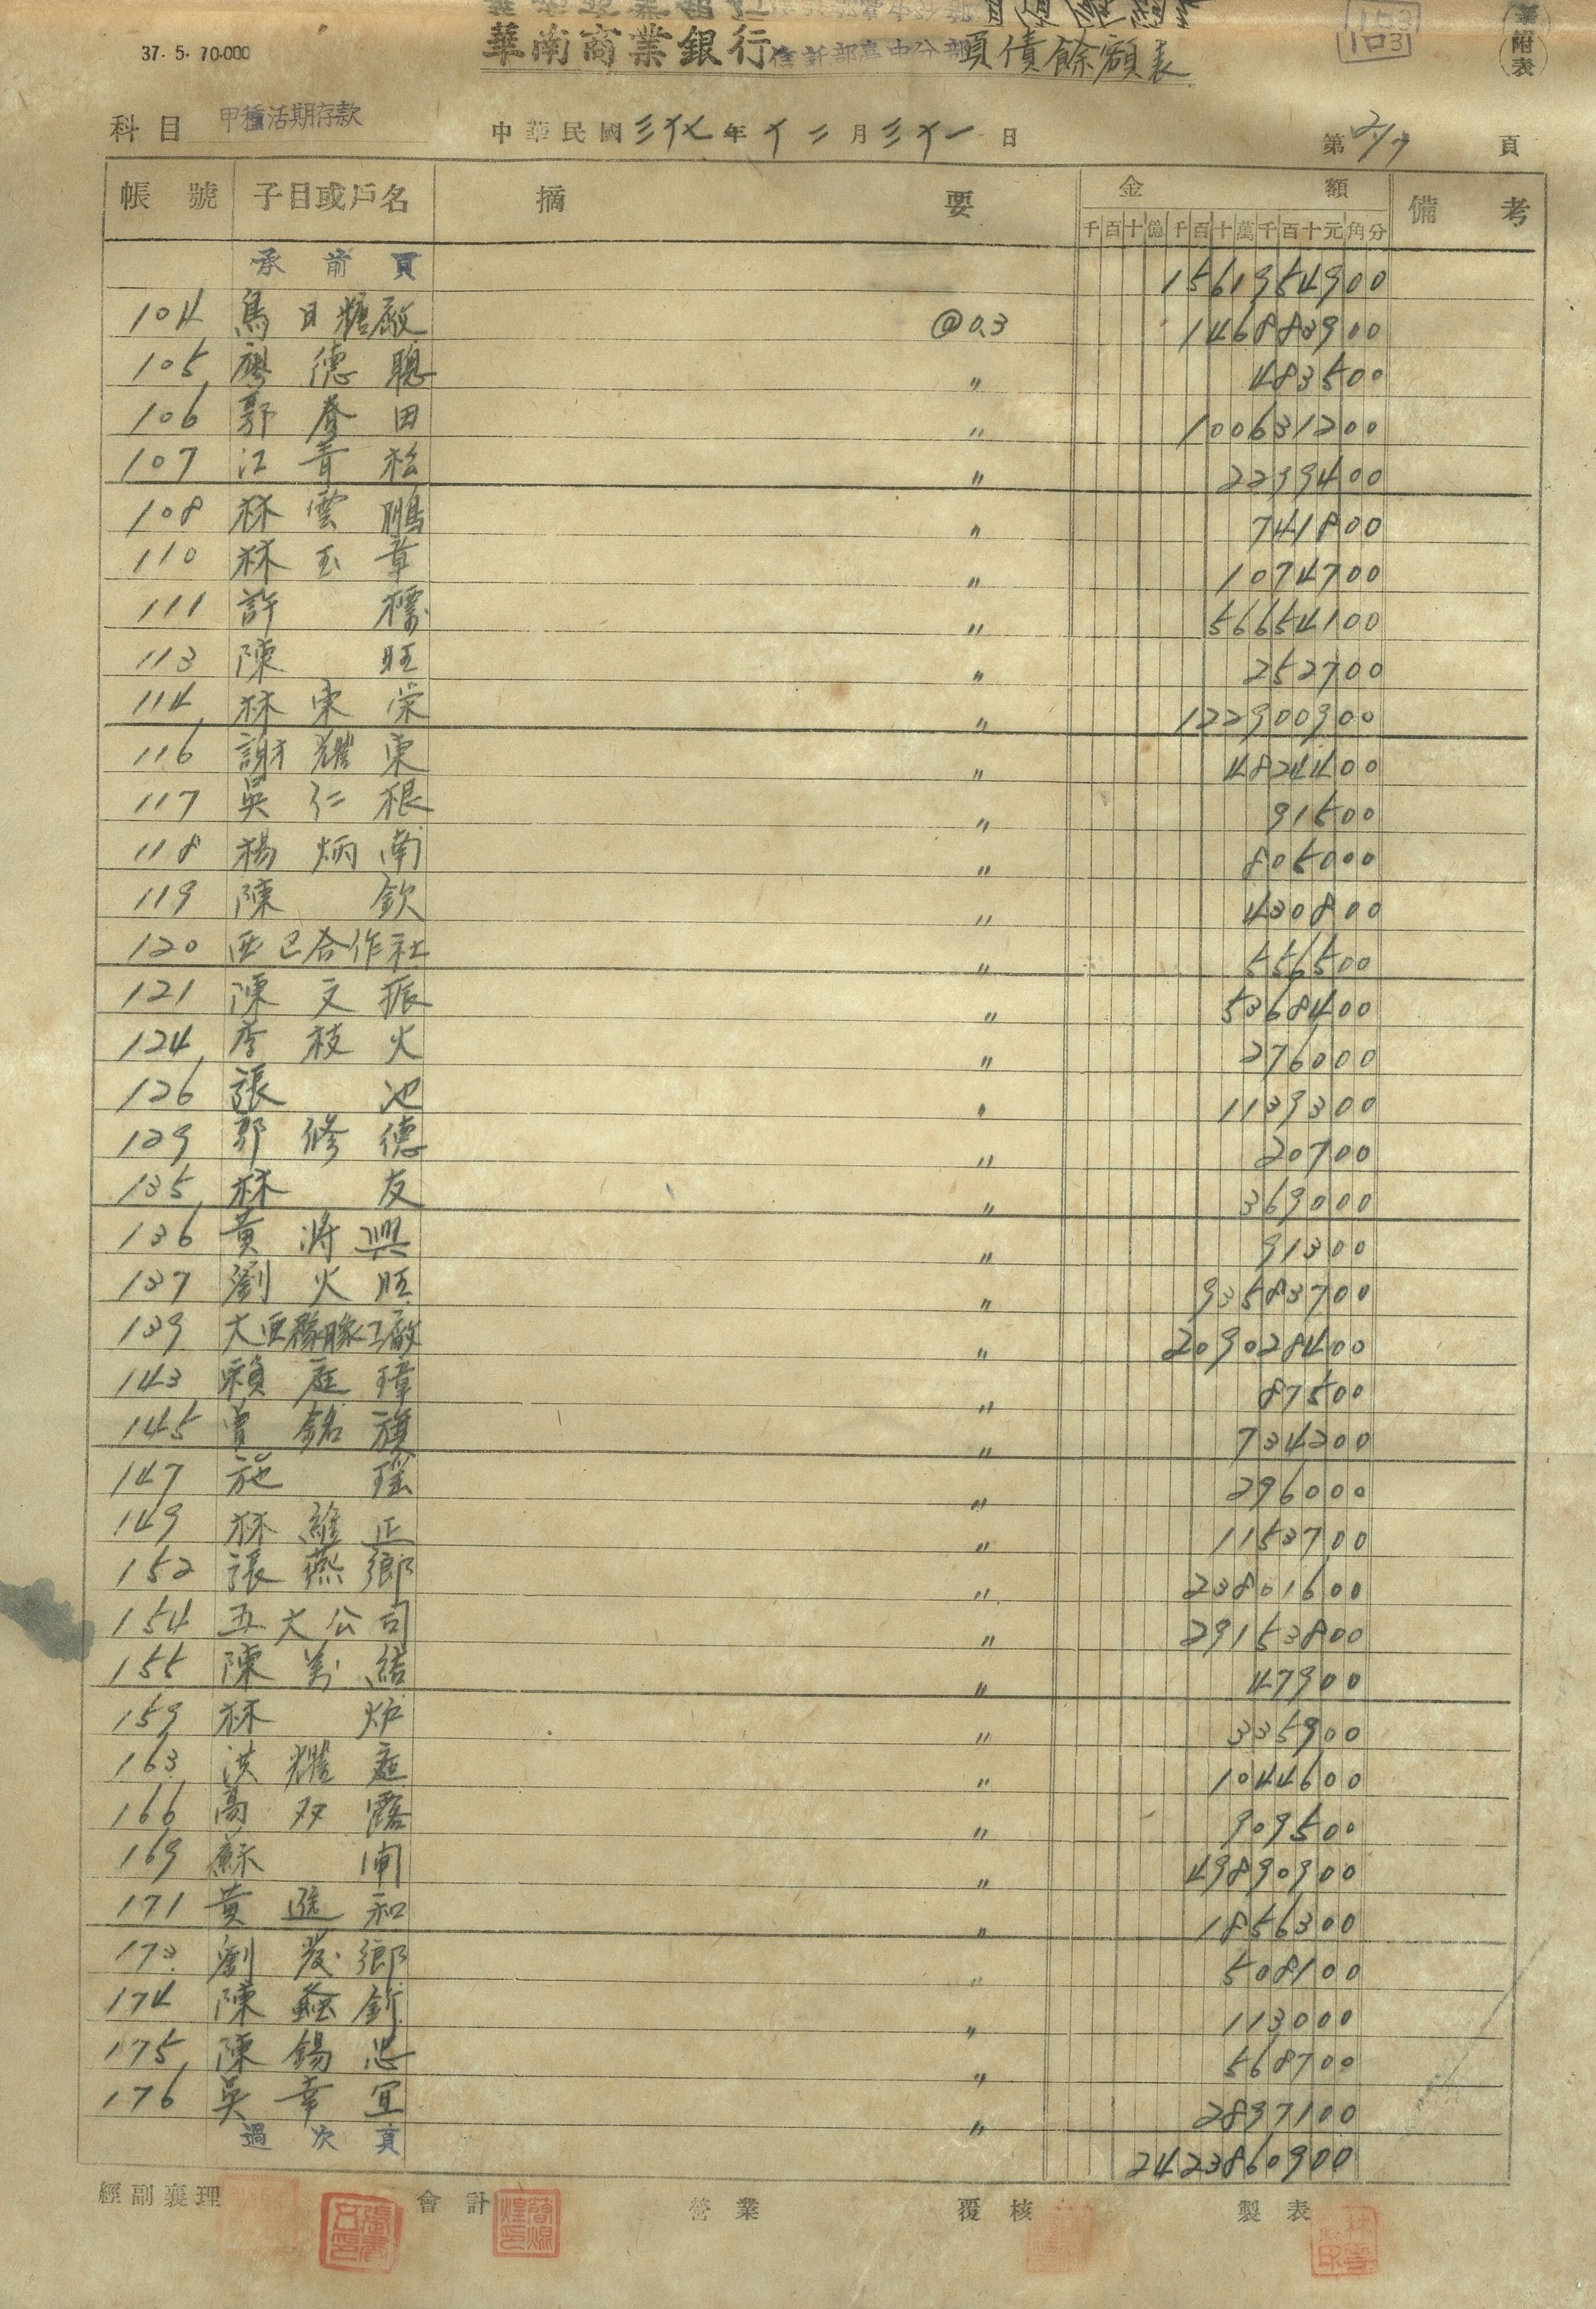 37. 5. 70.000
華南商業銀行信託部臺中分部負債餘額表
附表
科目 甲種活期存款 中華民國三十七年十二月三十一日 第2/7頁
帳號 子目或戶名 摘要 金額 備考
千百十億千百十萬千百十元角分
承前頁 1561954900
104 烏日糖廠 @0.3 146883900
105 廖德聰 〃 483500
106 郭春田 〃 100631200
107 江青松 〃 2299400
108 林雲鵬 〃 741800
110 林玉章 〃 1074700
111 許標 〃 56654100
113 陳旺 〃 252700
114 林東榮 〃 122900900
116 謝耀東 〃 4824400
117 吳仁根 〃 91500
118 楊炳南 〃 805000
119 陳欽 〃 430800
120 西巳合作社 〃 556500
121 陳文振 〃 5368400
124 李枝火 〃 276000
126 張池 〃 1139300
129 郭修德 〃 20700
135 林友 〃 369000
136 黃將興 〃 91300
137 劉火旺 〃 93583700
139 大東橡膠工廠 〃 209028400
143 賴庭璋 〃 87500
145 曾銘旗 〃 734200
147 施瑤 〃 296000
149 林維正 〃 1153700
152 張燕鄉 〃 23801600
154 五大公司 〃 29153800
155 陳萬結 〃 47900
159 林炉 〃 335900
163 洪耀庭 〃 1044600
166 高双露 〃 909500
169 蘇閙 〃 49890900
171 黃進和 〃 1856300
173 劉茂鄉 〃 508100
174 陳發釿 〃 113000
175 陳錫忠 〃 568700
176 吳幸宜 〃 2897100
過次頁 2423860900
經副襄理 會計 營業 覆核 製表